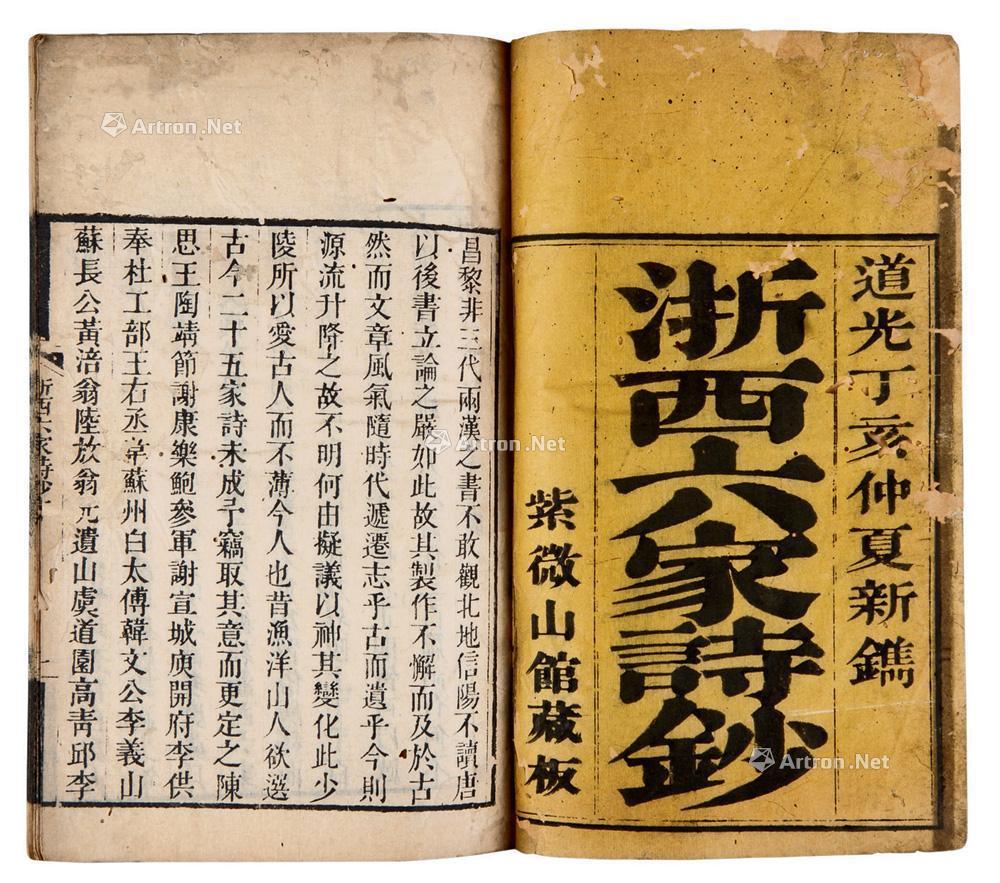 道光丁亥仲夏新鐫
浙西六家詩鈔
紫微山館藏板
昌黎非三代兩漢之書不敢觀北地信陽不讀唐
以後書立論之嚴如此故其製作不懈而及於古
然而文章風氣隨時代遞遷志乎古而遺乎今則
源流升降之故不明何由擬議以神其變化此少
陵所以愛古人而不薄今人也昔漁洋山人欲選
古今二十五家詩未成予竊取其意而更定之陳
思王陶靖節謝康樂鮑參軍謝宣城庾開府李供
奉杜工部王右丞韋蘇州白太傅韓文公李義山
蘇長公黃涪翁陸放翁元遺山虞道園高青邱李
浙西六家詩鈔
Artron.Net
Artron.Net
Artron.Net